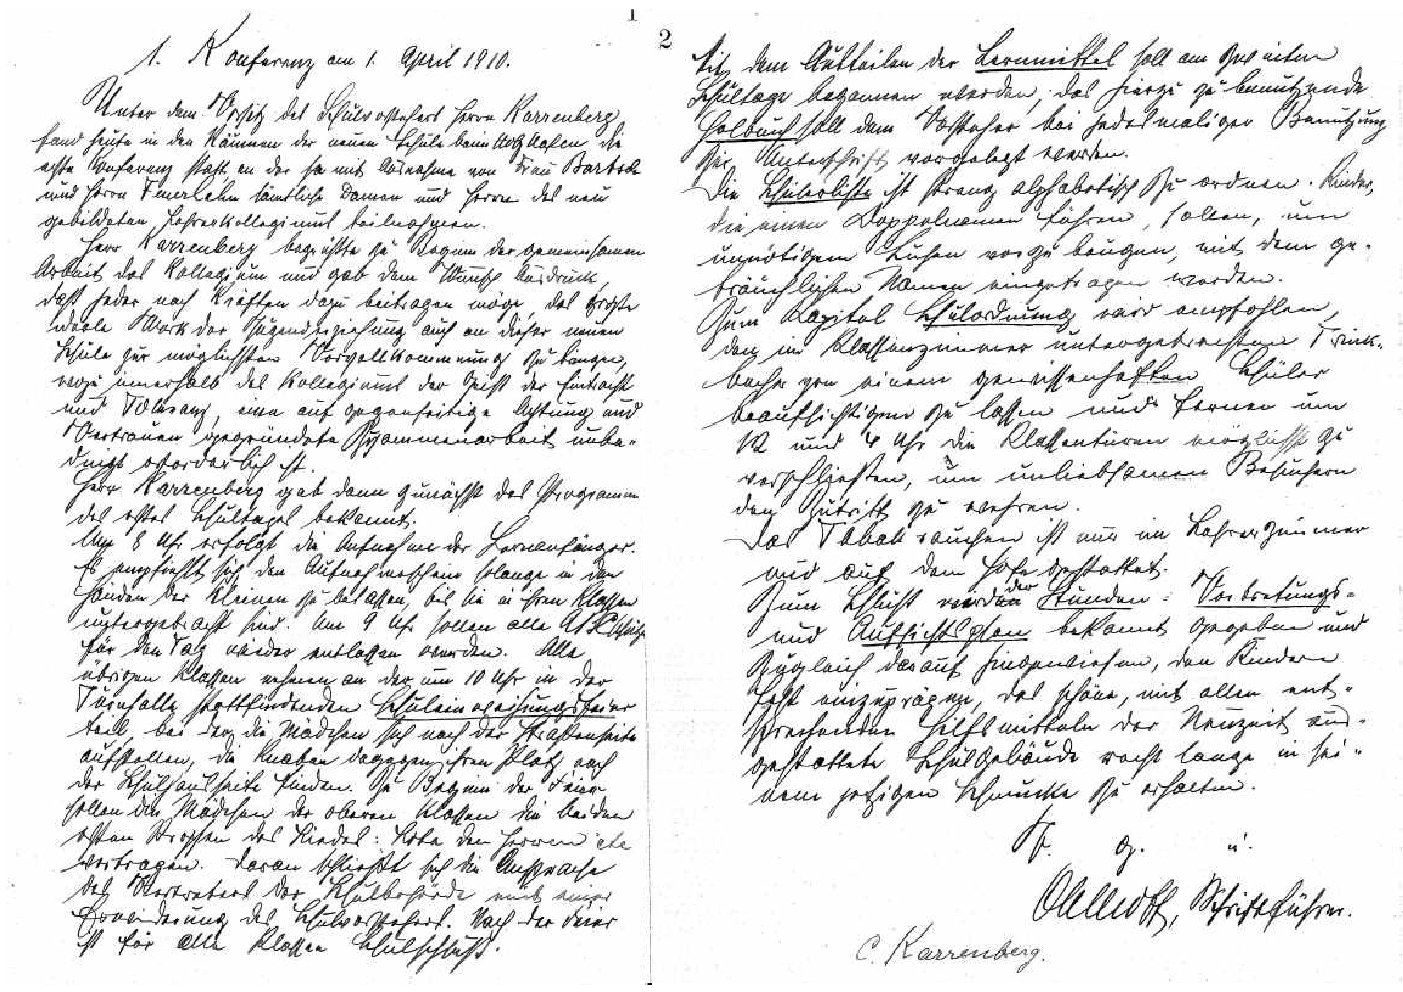 1
1. Konferenz am 1. April 1910.
Unter dem Vorsitz des Schulvorstehers Herrn Karrenberg
fand heute in den Räumen der neuen Schule beim Holzhafen die
erste Konferenz statt, an der sie mit Ausnahme von Frau Bartels
und Herrn sämtliche Damen und Herren des neu
gebildeten Lehrerkollegiums teilnahmen.
Herr Karrenberg begrüßte zu Beginn der gemeinsamen
Arbeit das Kollegium und gab dem Wunsch Ausdruck,
daß jeder nach Kräften dazu beitragen möge, das große
ideale Werk der Jugenderziehung auch an dieser neuen
Schule zur möglichsten Vervollkommnung zu bringen,
wozu innerhalb des Kollegiums der Geist der Eintracht
und Toleranz, eine auf gegenseitige Achtung und
Vertrauen gegründete Zusammenarbeit unbe-
dingt erforderlich ist.
Herr Karrenberg gab dann zunächst das Programm
des ersten Schultages bekannt.
Um 8 Uhr erfolgt die Aufnahme der Lernanfänger.
Es empfiehlt sich, den Aufnahmeschein solange in den
Händen der Kleinen zu belassen, bis sie in ihren Klassen
untergebracht sind. Um 9 Uhr sollen alle
für den Tag wieder entlassen werden. Alle
übrigen Klassen nehmen an der um 10 Uhr in der
Turnhalle stattfindenden Schuleinweihungsfeier
teil, bei der die Mädchen sich nach der Straßenseite
aufstellen, die Knaben dagegen ihren Platz nach
der Schulhausseite finden. Zu Beginn der Feier
sollen die Mädchen der oberen Klassen die beiden
ersten Strophen des Liedes: Lobe den Herren etc
vortragen. Daran schließt sich die Ansprache
des Vertreters der Schulbehörde mit einer
Erwiderung des Schulvorstehers. Nach der Feier
ist für alle Klassen Schulschluß.
2
Mit dem Austeilen der Lernmittel soll am zweiten
Schultage begonnen werden, das hierzu zu benutzende
Holbuch soll dem Vorsteher bei jedesmaliger Benutzung
zur Unterschrift vorgelegt werden.
Die Schülerliste ist streng alphabetisch zu ordnen. Kinder,
die einen Doppelnamen führen, sollen, um
unnötigem Suchen vorzubeugen, mit dem ge-
bräuchlichen Namen eingetragen werden.
Zum Kapitel Schulordnung wird empfohlen,
den im Klassenzimmer untergebrachten Trink-
becher von einem gewissenhaften Schüler
beaufsichtigen zu lassen und ferner um
12 und 4 Uhr die Klassentüren möglichst zu
verschließen, um unliebsamen Besuchern
den Zutritt zu wehren.
Das Tabakrauchen ist nur im Lehrerzimmer
und auf dem Hofe gestattet.
Zum Schluß werden der Stunden-, Vertretungs-
und Aufsichtsplan bekannt gegeben und
zugleich darauf hingewiesen, den Kindern
fest einzuprägen, das schöne, mit allen ent-
sprechenden Hilfsmitteln der Neuzeit aus-
gestattete Schulgebäude recht lange in sei-
nem jetzigen Schmucke zu erhalten.
V. g. u.
Schriftführer.
C. Karrenberg.